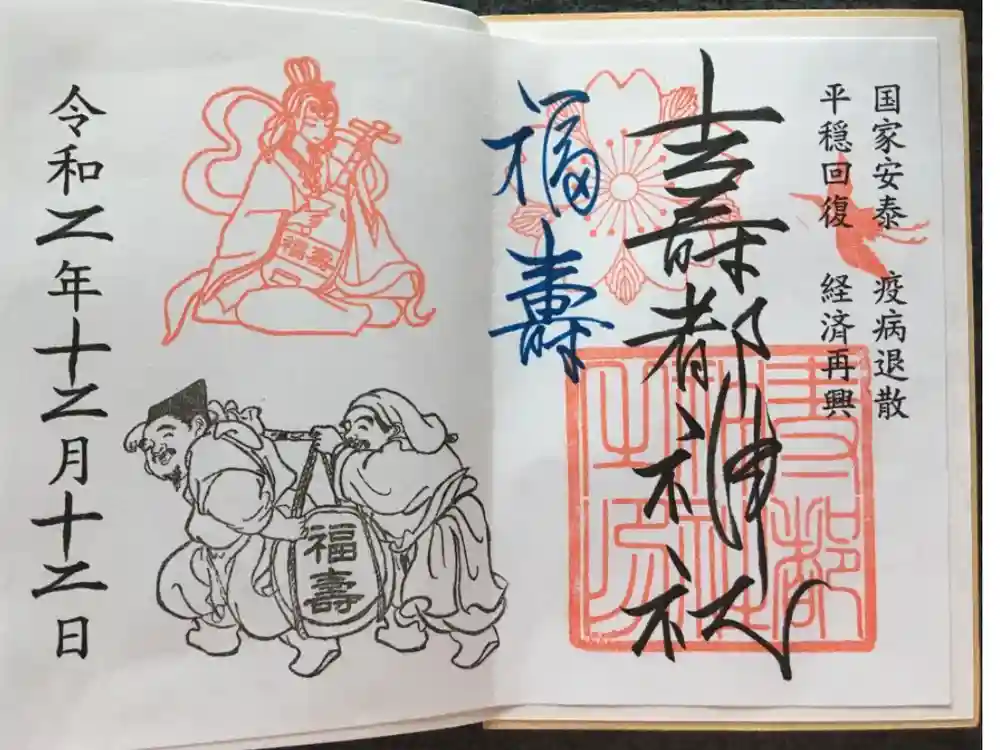 国家安泰 疫病退散
平穏回復 経済再興
壽都神社
福壽
福壽
福壽
令和二年十二月十二日
壽都神社之印